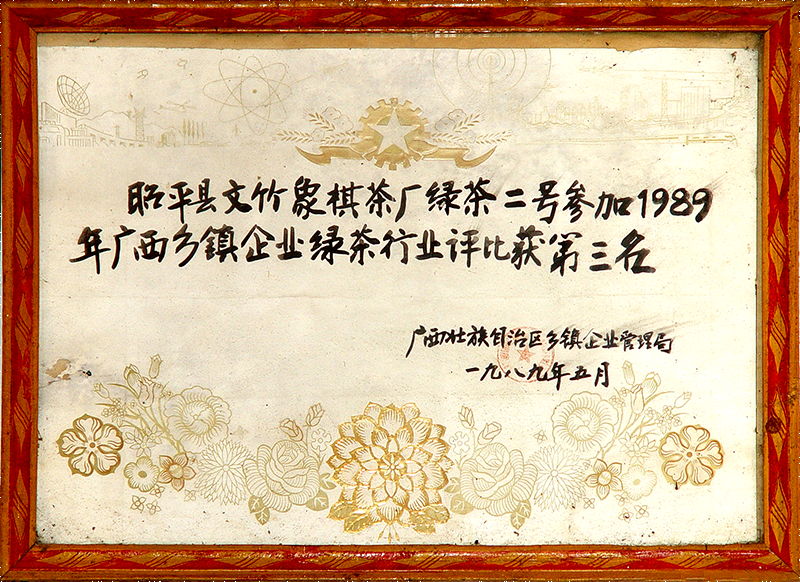 昭平县文竹象棋茶厂绿茶二号参加1989
年广西乡镇企业绿茶行业评比获第三名
广西壮族自治区乡镇企业管理局
一九八九年五月